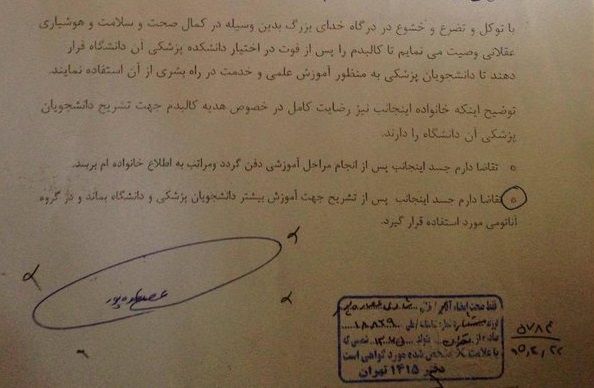 با توکل و تضرع و خشوع در درگاه خدای بزرگ بدین وسیله در کمال صحت و سلامت و هوشیاری
عقلانی وصیت می نمایم تا کالبدم را پس از فوت در اختیار دانشکده پزشکی آن دانشگاه قرار
دهند تا دانشجویان پزشکی به منظور آموزش علمی و خدمت در راه بشری از آن استفاده نمایند.
توضیح اینکه خانواده اینجانب نیز رضایت کامل در خصوص هدیه کالبدم جهت تشریح دانشجویان
پزشکی آن دانشگاه را دارند.
تقاضا دارم جسد اینجانب پس از انجام مراحل آموزشی دفن گردد ومراتب به اطلاع خانواده ام برسد.
تقاضا دارم جسد اینجانب پس از تشریح جهت آموزش بیشتر دانشجویان پزشکی و دانشگاه بماند و در گروه
اناتومی مورد استفاده قرار گیرد.
فقط صحت امضاء
۱۸۸۲۹
صادره از تهران متولد
با علامت مشخص شده مورد گواهی است
دفتر ۱۴۱۵ تهران
۵۷۸۴